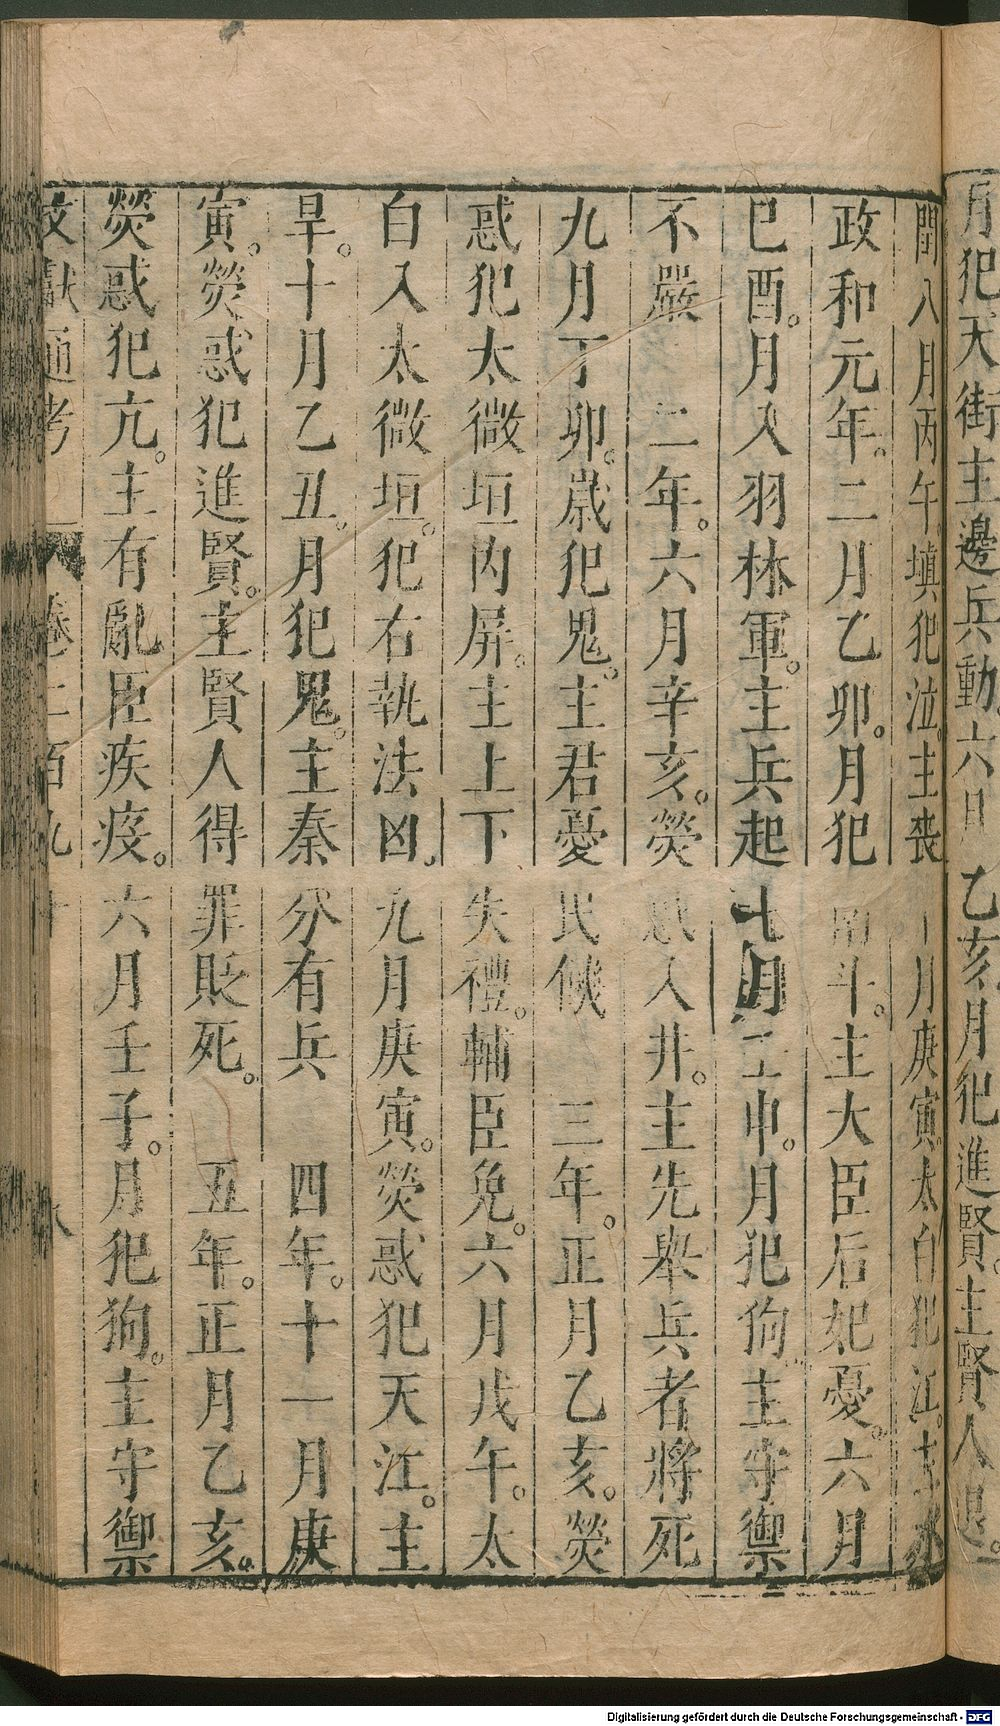 月犯天街主邊兵動。六月乙亥月犯進賢。主賢人退。
閏八月丙午。塡犯泣。主喪 月庚寅。太白犯江。主水
政和元年。二月乙卯。月犯 斗。主大臣后妃憂。六月
巳酉。月入羽林軍。主兵起七月 申。月犯狗主守禦
不嚴 二年。六月辛亥。熒惑入井。主先舉兵者將死
九月丁卯。歲犯鬼。主君憂民餒 三年。正月乙亥。熒
惑犯太微垣內屏。主上下失禮。輔臣免。六月戊午。太
白入太微垣。犯右執法凶。九月庚寅。熒惑犯天江。主
旱。十月乙丑。月犯鬼。主秦分有兵 四年。十一月庚
寅。熒惑犯進賢。主賢人得罪貶死。 五年。正月乙亥。
熒惑犯亢。主有亂臣疾疫。六月壬子。月犯狗。主守禦
文獻通考 卷二百九十 八
Digitalisierung gefördert durch die Deutsche Forschungsgemeinschaft - DFG